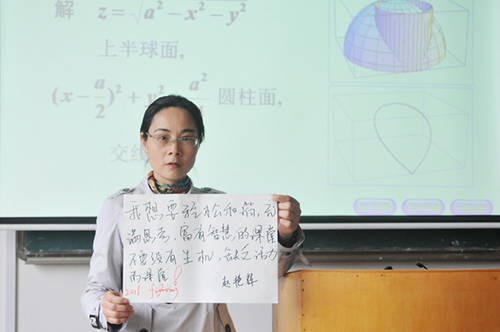 解 z=√a²-x²-y²
上半球面,
(x-a/2)²+y² a² 圆柱面,
交线
我想要轻松和谐,充
满思考,富有智慧的课堂
不要没有生机,缺乏活力
的课堂! 赵艳辉